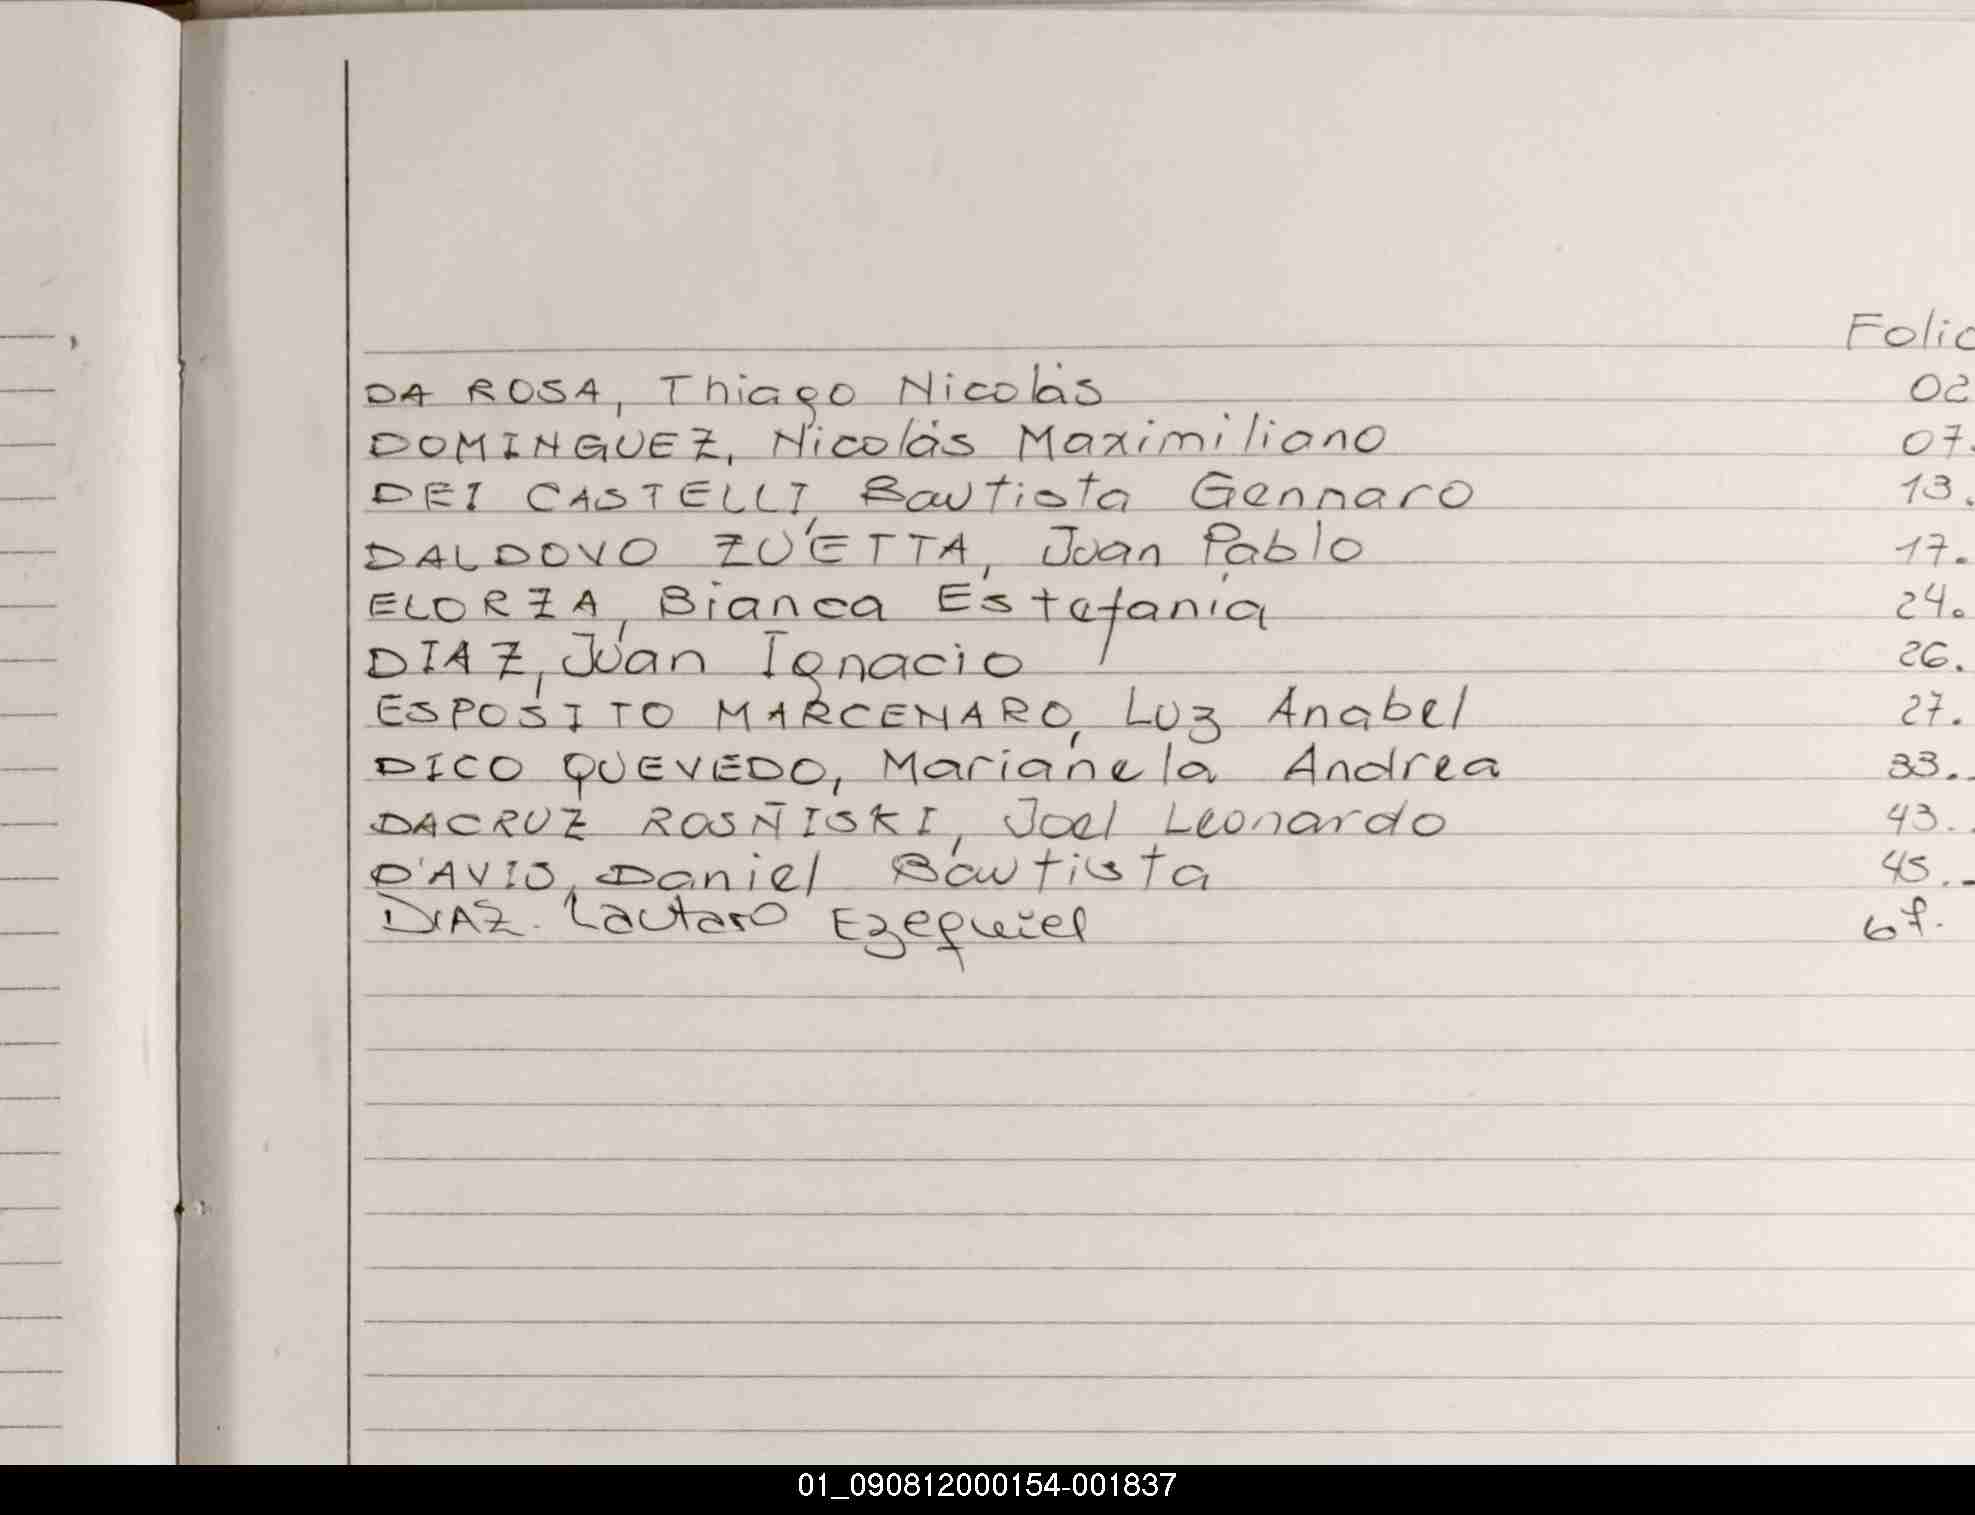 Folio
DA ROSA, Thiago Nicolás 02
DOMINGUEZ, Nicolás Maximiliano 07.
DEI CASTELLI, Bautista Gennaro 13.
DALDOVO ZUETTA, Juan Pablo 17.
ELORZA, Bianca Estefanía 24.
DIAZ, Juan Ignacio 26.
ESPOSITO MARCENARO, Luz Anabel 27.
DICO QUEVEDO, Marianela Andrea 33..
DACRUZ ROSÑISKI, Joel Leonardo 43..
D'AVIS, Daniel Bautista 45.-
DIAZ. Lautaro Ezequiel
01_090812000154-001837